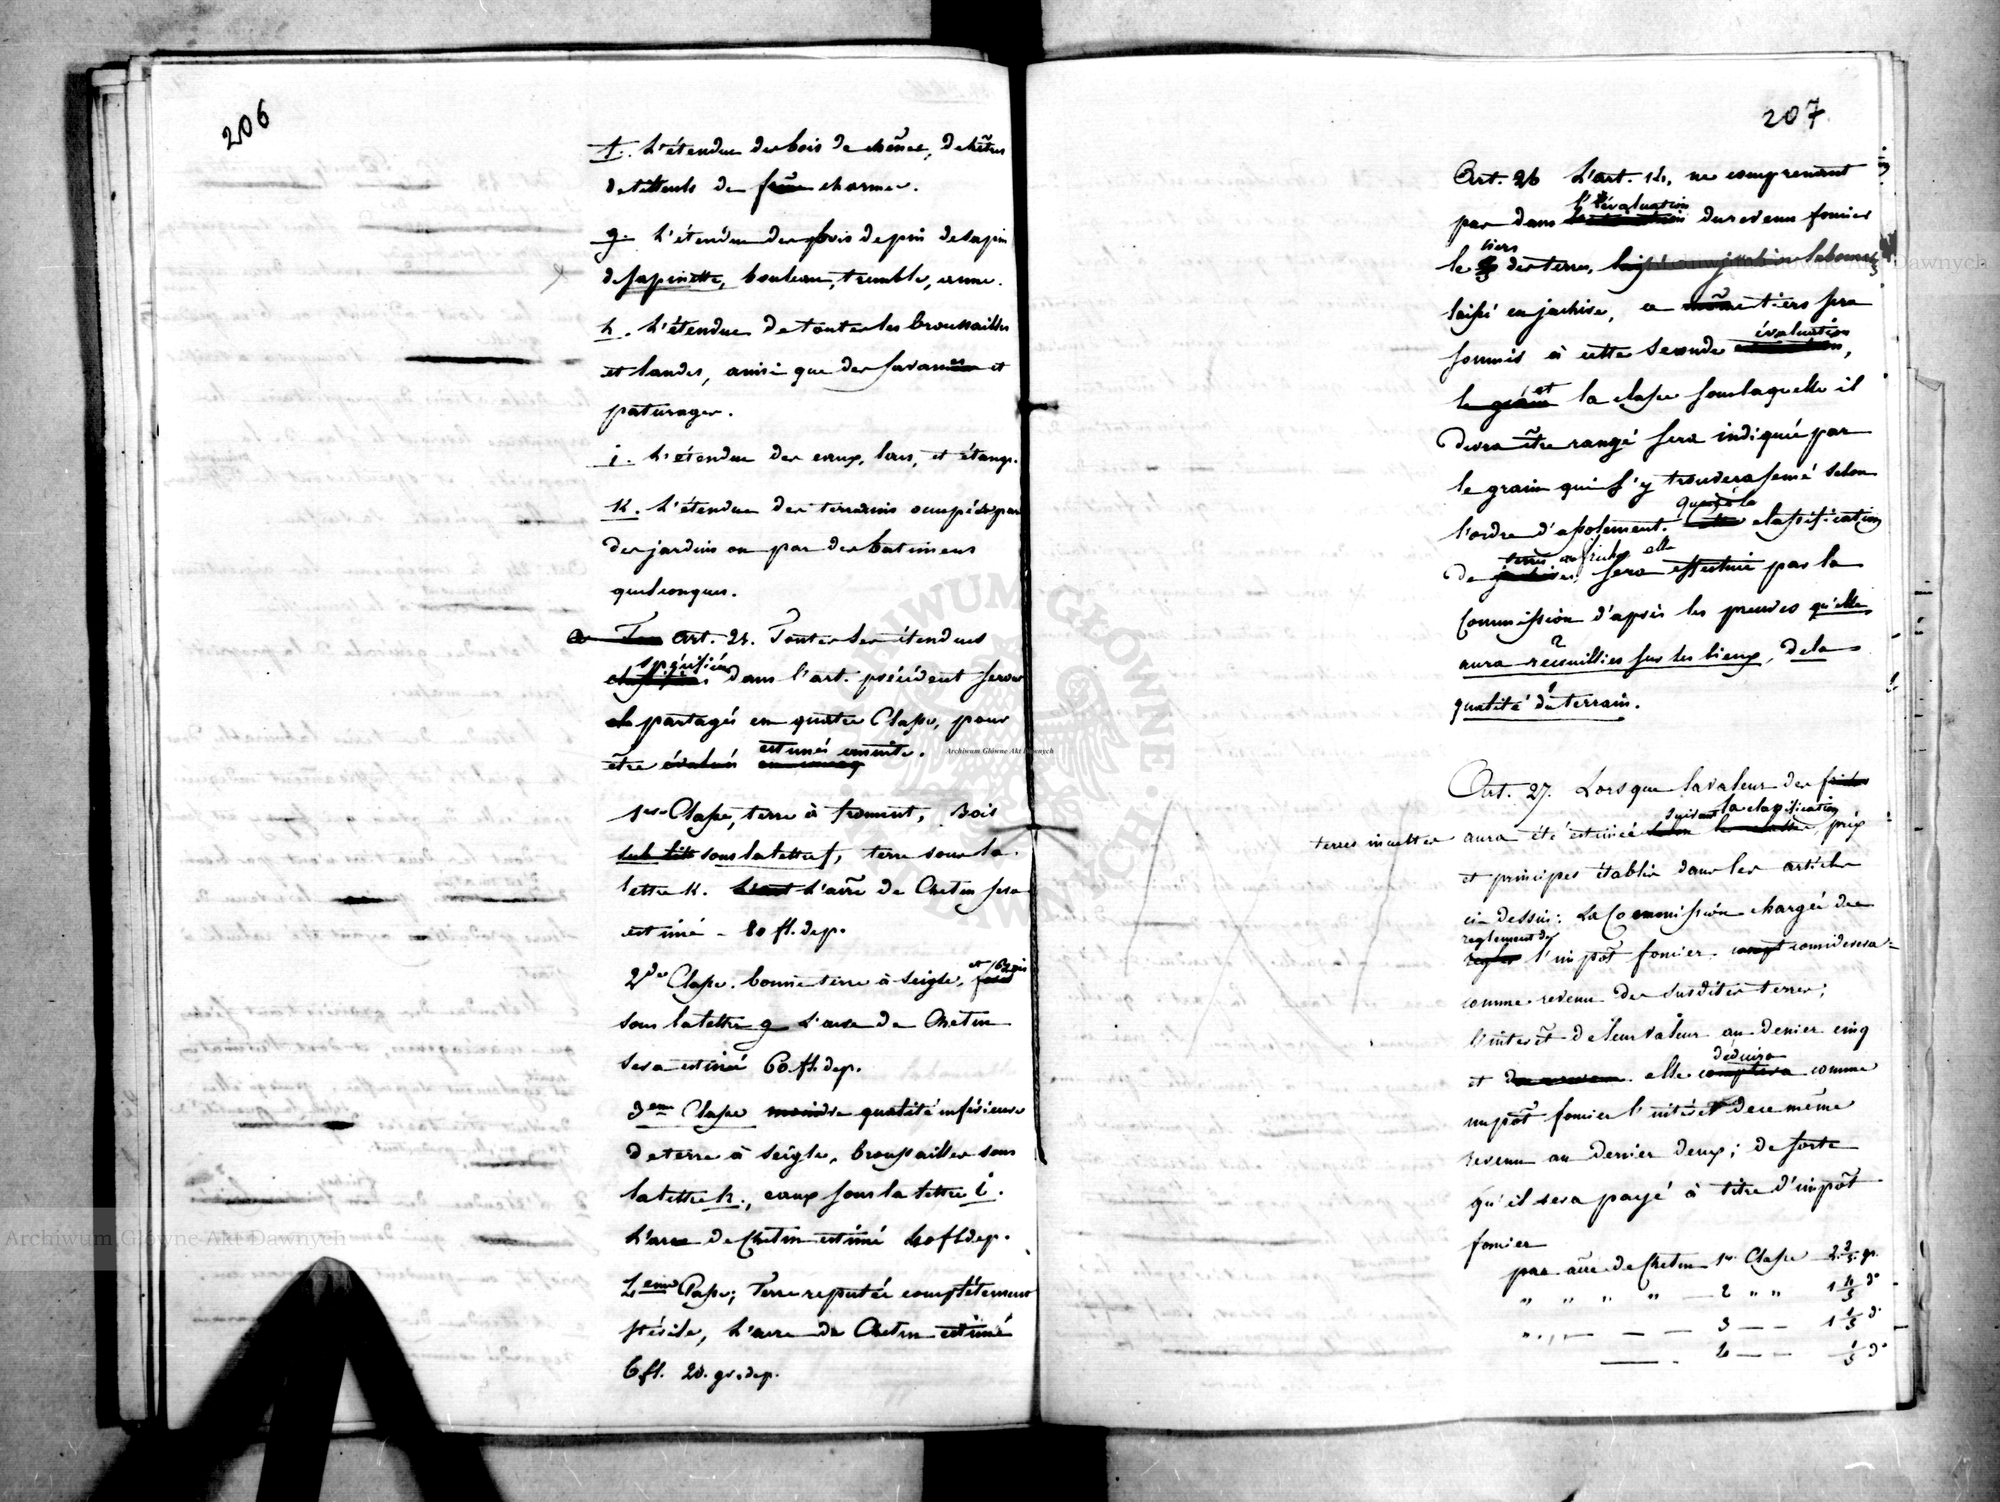 206
f. L'étendue des bois de chênes, de hêtres
de tilleuls de charmes.
g. L'étendue des bois de pin de sapin
de sapinette, bouleau, tremble, aune.
h. L'étendue de toutes les broussailles
et landes, ainsi que des savannes et
paturages.
i. L'étendue des eaux, lacs, et étangs.
K. L'étendue des terrains occupés par
des jardins ou par des batimens
quelconques.
Art. 25. Toutes ces étendues
spécifiées dans l'art. précédent seront
partagés en quatre Classes, pour
être évalués estimés ensuite.
1ere Classe, terre à froment, Bois
sous la lettre f, terre sous la
lettre K. L'acre de Chelm sera
estimé - 80 fl. dep.
2de Classe. bonne terre à seigle, et bois
sous la lettre g L'acre de Chelm
sera estimé 60 fl. dep.
3eme Classe moindre qualité inférieure
de terre à seigle, broussailles sous
la lettre h., eaux sous la lettre i.
L'acre de Chelm estimé 40 fl dep.
4eme Classe; Terre reputée complètement
stérile, L'acre de Chelm estimé
6 fl. 20. gr. dep.
207
Art. 26 L'art. 14, ne comprenant
pas dans l'évaluation du revenu foncier
le tiers des terres,
laissé en jachère, ce tiers sera
soumis à cette seconde évaluation,
et la classe sous laquelle il
devra être rangé sera indiquée par
le grain qui s'y trouvera semé selon
l'ordre d'assolement. quant à la classification
de terres en friche elle sera effectuée par la
Commission d'après les preuves qu'elle
aura recueillies sur les lieux, de la
qualité du terrain.
Art. 27. Lorsque la valeur des friches
terres incultes aura été estimée suivant la classification, prix
et principes établis dans les articles
ci-dessus: La Commission chargée du
reglement de l'impôt foncier considerera
comme revenu des susdites terres;
l'interêt de leur valeur au denier cinq
et elle déduira comme
impôt foncier l'intérêt de ce même
revenu au denier deux; de sorte
qu'il sera payé à titre d'impôt
foncier
par acre de Chelm 1re Classe 2 2/5 gr.
" " " " — 2 " " 1 4/5 do
" " — — — 3 — — 1 1/5 do
— 4 — — 1/5 do
Archiwum Główne Akt Dawnych
Archiwum Główne Akt Dawnych